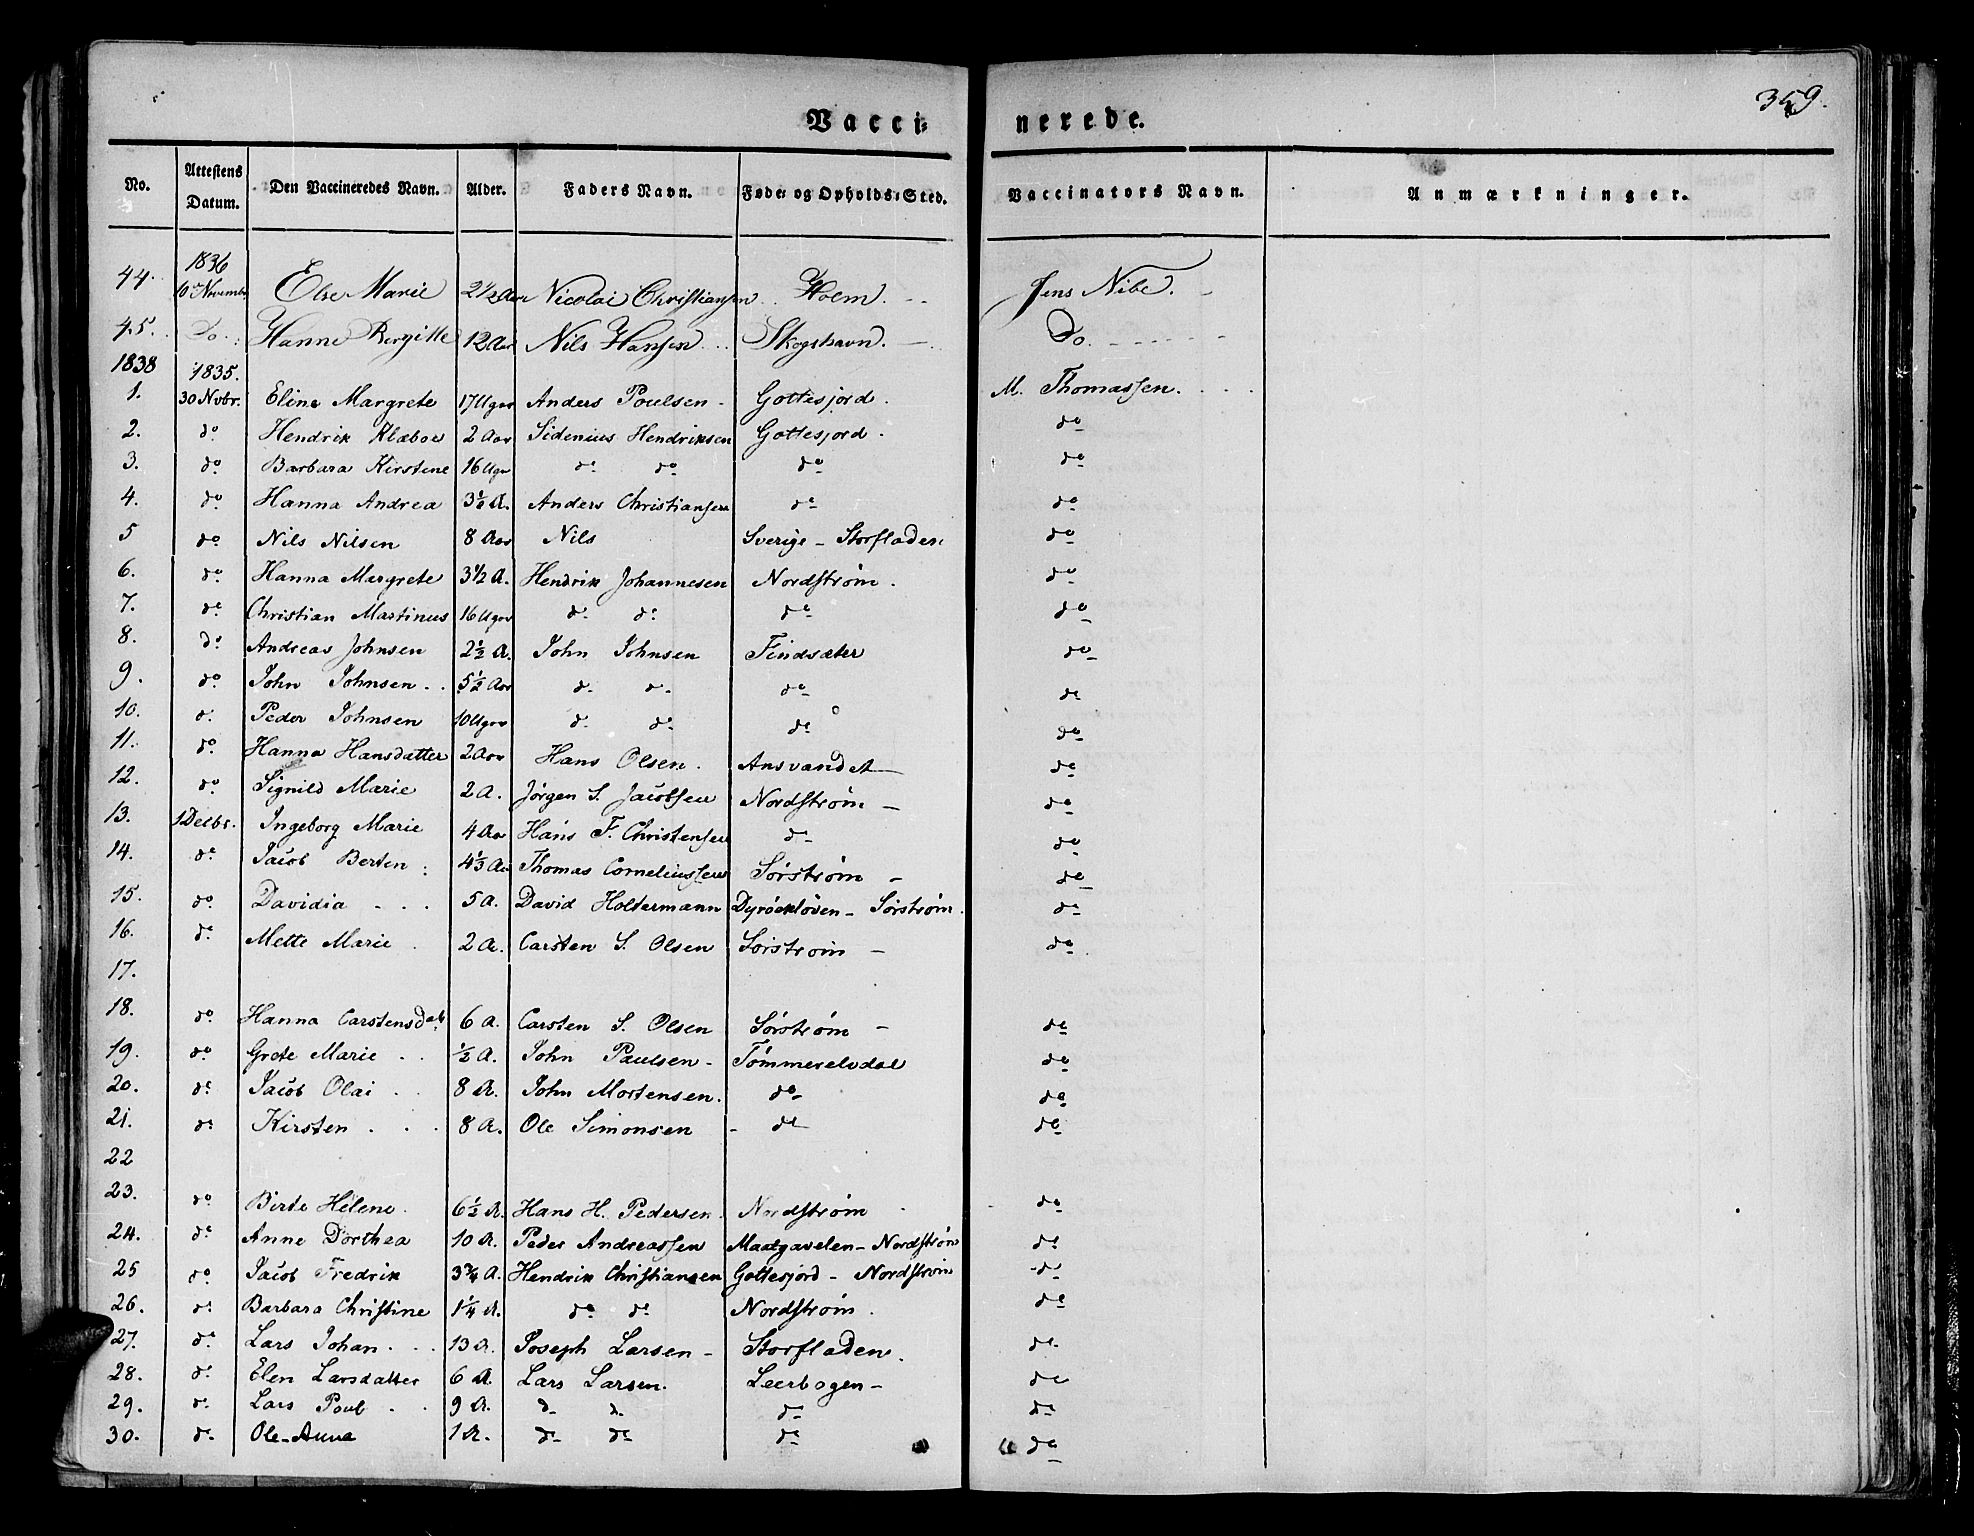 359.
Vacci- nerede.
No. Attestens Datum. Den Vaccineredes Navn. Alder. Faders Navn. Føde- og Opholds-Sted. Vaccinators Navn. Anmærkninger.
1836
44. 10de Novembr Else Marie 2 1/2 Aar Nicolai Christiansen Holm. Jens Nibe.
45. Do. Hanne Bergitte 12 Aar Nils Hansen Skogshavn. Do.
1838 1835.
1. 30 Nvbr. Eline Margrete 17 Uger Anders Poulsen Gottesjord. M. Thomassen.
2. do Hendrik Klæboe 2 Aar Sidenius Hendriksen Gottesjord. do
3. do Barbara Kirstine 16 Uger do do do do
4. do Hanna Andrea 3 1/2 A. Anders Christiansen do do
5 do Nils Nilsen 8 Aar Nils Sverige - Storfladen do
6. do Hanna Margrete 3 1/2 A. Hendrik Johannesen Nordstrøm. do
7. do Christian Martinus 16 Uger do do do do
8. do Andreas Johnsen 2 1/2 A. John Johnsen Findsæter do
9. do John Johnsen 5 1/2 Aar do do do do
10. do Peder Johnsen 10 Uger do do do do
11. do Hanna Hansdatter 2 Aar Hans Olsen. Ansvandet do
12. do Signild Marie 2 A. Jørgen S. Jacobsen Nordstrøm do
13. 1 Decbr. Ingeborg Marie 4 Aar Hans F. Christensen do do
14. do Jacob Berten 4 1/3 Aar Thomas Corneliussen Sørstrøm do
15. do Davidia 5 A. David Holtermann Dyröekløven - Sørstrøm. do
16. do Mette Marie 2 A. Carsten S. Olsen Sørstrøm do
17.
18. do Hanna Carstensdatt 6 A. Carsten S. Olsen Sørstrøm do
19. do Grete Marie 1/2 A. John Paulsen Tømmerelvdal do
20. do Jacob Olai 8 A. John Mortensen. do do
21. do Kirsten 8 A. Ole Simonsen do do
22
23. do Birte Helene 6 1/2 A. Hans H. Pedersen. Nordstrøm do
24. do Anne Dorthea 10 A. Peder Andreassen Maatgavelen - Nordstrøm do
25 do Jacob Fredrik 3 3/4 A. Hendrik Christiansen Gottesjord - Nordstrøm do
26. do Barbara Christine 1 1/4 A. do do Nordstrøm. do
27. do Lars Johan 13 A. Joseph Larsen Storfladen. do
28. do Elen Larsdatter 6 A. Lars Larsen. Leerbogen do
29. do Lars Poul 9 A. do do do do
30. do Ole-Anna 1 A. do do do do